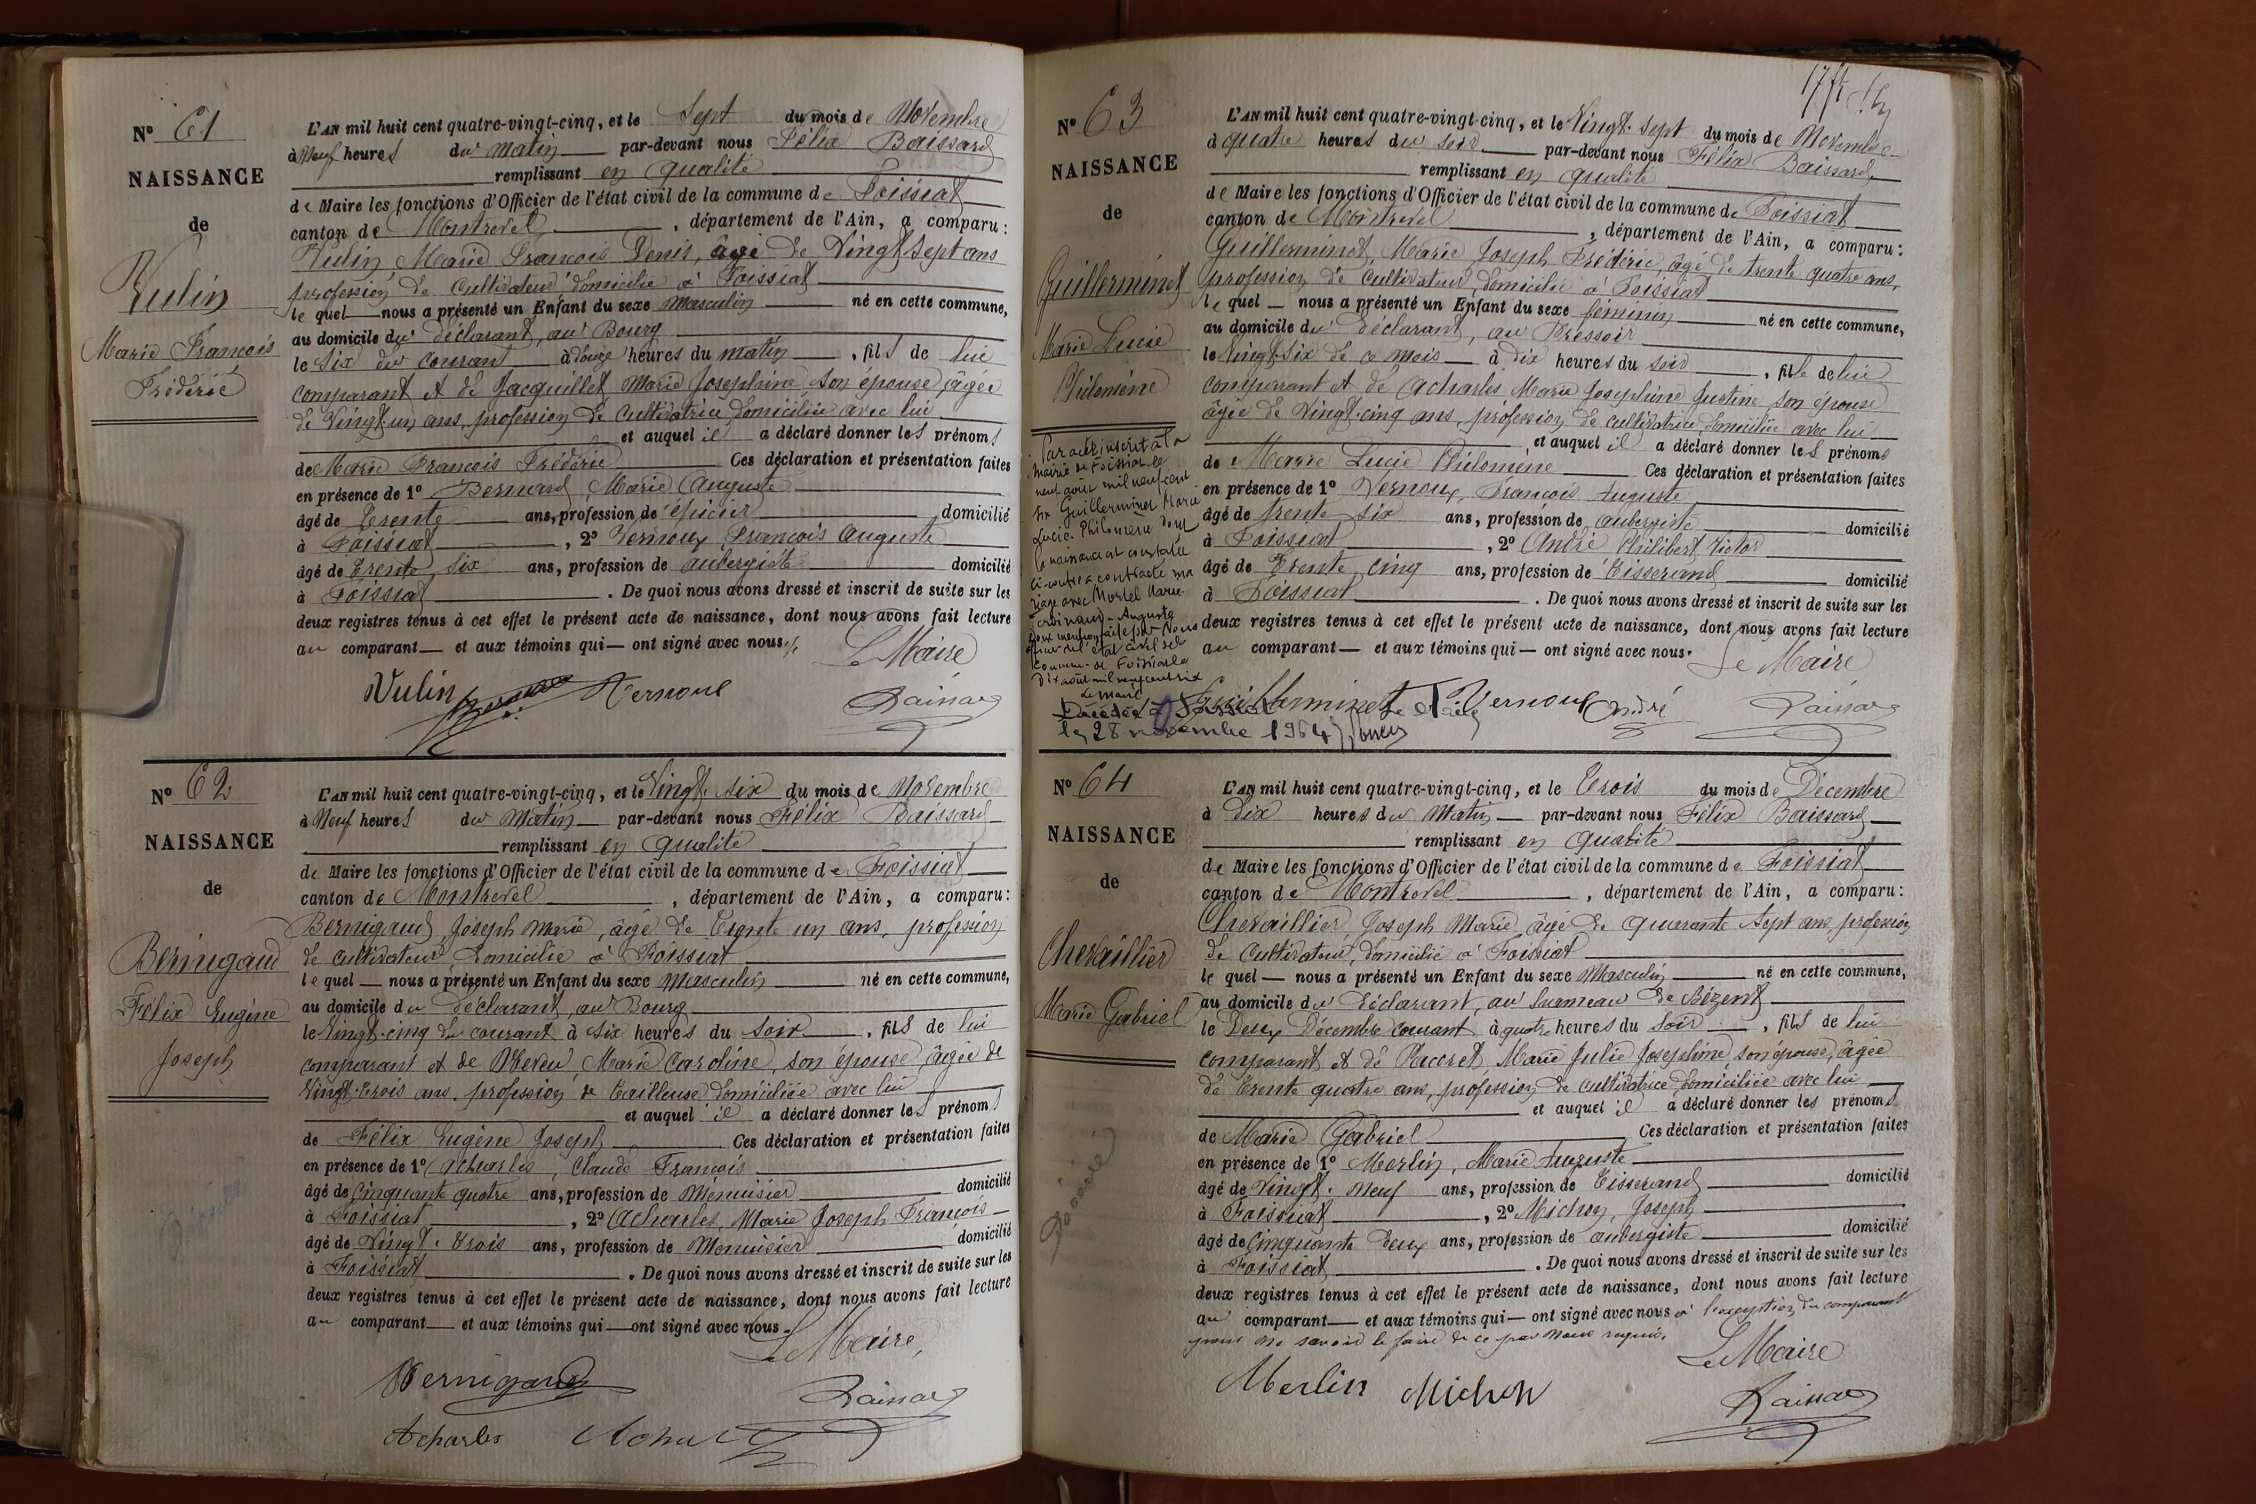 N° 61
NAISSANCE
de
Vulin
Marie François
Frédéric
L'AN mil huit cent quatre-vingt-cinq, et le Sept du mois de Novembre
à Neuf heures du matin par-devant nous Félix Baissard
remplissant en qualité
de Maire les fonctions d'Officier de l'état civil de la commune de Foissiat
canton de Montrevel, département de l'Ain, a comparu :
Vulin, Marie François Denis, âgé de Vingt sept ans
profession de cultivateur domicilié à Foissiat
le quel nous a présenté un Enfant du sexe masculin né en cette commune,
au domicile du déclarant, au Bourg
le Six du courant à douze heures du matin, fils de lui
comparant et de Jacquillet Marie Joséphine son épouse, âgée
de Vingt-un ans, profession de cultivatrice domiciliée avec lui
et auquel il a déclaré donner les prénoms
de Marie François Frédéric Ces déclaration et présentation faites
en présence de 1° Bernard, Marie Auguste
âgé de Trente ans, profession de épicier domicilié
à Foissiat, 2° Vernoux, François Auguste
âgé de Trente six ans, profession de aubergiste domicilié
à Foissiat. De quoi nous avons dressé et inscrit de suite sur les
deux registres tenus à cet effet le présent acte de naissance, dont nous avons fait lecture
au comparant et aux témoins qui ont signé avec nous.
Le Maire
Vulin Vernoux Baissard
N° 62
NAISSANCE
de
Bernigaud
Félix Eugène
Joseph
L'AN mil huit cent quatre-vingt-cinq, et le Vingt-six du mois de Novembre
à Neuf heures du Matin par-devant nous Félix Baissard
remplissant en qualité
de Maire les fonctions d'Officier de l'état civil de la commune de Foissiat
canton de Montrevel, département de l'Ain, a comparu :
Bernigaud, Joseph Marie, âgé de Trente un ans, profession
de cultivateur domicilié à Foissiat
le quel nous a présenté un Enfant du sexe Masculin né en cette commune,
au domicile du déclarant, au Bourg
le Vingt-cinq du courant à six heures du soir, fils de lui
comparant et de Neveu Marie Caroline, son épouse, âgée de
Vingt-trois ans, profession de Tailleuse domiciliée avec lui
et auquel il a déclaré donner les prénoms
de Félix Eugène Joseph Ces déclaration et présentation faites
en présence de 1° Acharles, Claude François
âgé de Cinquante quatre ans, profession de Menuisier domicilié
à Foissiat, 2° Acharles, Marie Joseph François
âgé de Vingt-trois ans, profession de Menuisier domicilié
à Foissiat. De quoi nous avons dressé et inscrit de suite sur les
deux registres tenus à cet effet le présent acte de naissance, dont nous avons fait lecture
au comparant et aux témoins qui ont signé avec nous.
Le Maire,
Bernigaud Baissard
Acharles
N° 63
NAISSANCE
de
Guilleminet
Marie Lucie
Philomène
Par acte inscrit à la
mairie de Foissiat le
neuf août mil neuf cent
six Guilleminet Marie
Lucie Philomène dont
la naissance est constatée
ci-contre a contracté ma
riage avec Morlel Marie
Auguste
Dont mention faite par Nous
officier de l'état civil de la
commune de Foissiat le
dix août mil neuf cent six
Le Maire
Décédée à Foissiat
le 28 novembre 1964
L'AN mil huit cent quatre-vingt-cinq, et le Vingt-sept du mois de Novembre
à quatre heures du soir par-devant nous Félix Baissard
remplissant en qualité
de Maire les fonctions d'Officier de l'état civil de la commune de Foissiat
canton de Montrevel, département de l'Ain, a comparu :
Guilleminet, Marie Joseph Frédéric, âgé de trente quatre ans,
profession de cultivateur, domicilié à Foissiat
le quel nous a présenté un Enfant du sexe féminin né en cette commune,
au domicile du déclarant, au Pressoir
le Vingt-six de ce mois à dix heures du soir, fille de lui
comparant et de Acharles Marie Joséphine Justine son épouse
âgée de Vingt-cinq ans, profession de cultivatrice, domiciliée avec lui
et auquel il a déclaré donner les prénoms
de Marie Lucie Philomène Ces déclaration et présentation faites
en présence de 1° Vernoux, François Auguste
âgé de trente six ans, profession de aubergiste domicilié
à Foissiat, 2° André Philibert Victor
âgé de Trente cinq ans, profession de Tisserand domicilié
à Foissiat. De quoi nous avons dressé et inscrit de suite sur les
deux registres tenus à cet effet le présent acte de naissance, dont nous avons fait lecture
au comparant et aux témoins qui ont signé avec nous.
Le Maire
Guilleminet Vernoux André Baissard
N° 64
NAISSANCE
de
Chevaillier
Marie Gabriel
L'AN mil huit cent quatre-vingt-cinq, et le Trois du mois de Décembre
à Dix heures du Matin par-devant nous Félix Baissard
remplissant en qualité
de Maire les fonctions d'Officier de l'état civil de la commune de Foissiat
canton de Montrevel, département de l'Ain, a comparu :
Chevaillier, Joseph Marie, âgé de quarante sept ans, profession
de cultivateur, domicilié à Foissiat
le quel nous a présenté un Enfant du sexe Masculin né en cette commune,
au domicile du déclarant, au hameau de Bézent
le Deux Décembre courant à quatre heures du soir, fils de lui
comparant et de Pacoret, Marie Julie Joséphine son épouse, âgée
de Trente quatre ans, profession de cultivatrice domiciliée avec lui
et auquel il a déclaré donner les prénoms
de Marie Gabriel Ces déclaration et présentation faites
en présence de 1° Merlin, Marie Auguste
âgé de Vingt-neuf ans, profession de Tisserand domicilié
à Foissiat, 2° Michon, Joseph
âgé de Cinquante deux ans, profession de aubergiste domicilié
à Foissiat. De quoi nous avons dressé et inscrit de suite sur les
deux registres tenus à cet effet le présent acte de naissance, dont nous avons fait lecture
au comparant et aux témoins qui ont signé avec nous à l'exception du comparant
pour ne savoir le faire de ce par nous requis.
Le Maire
Merlin Michon Baissard